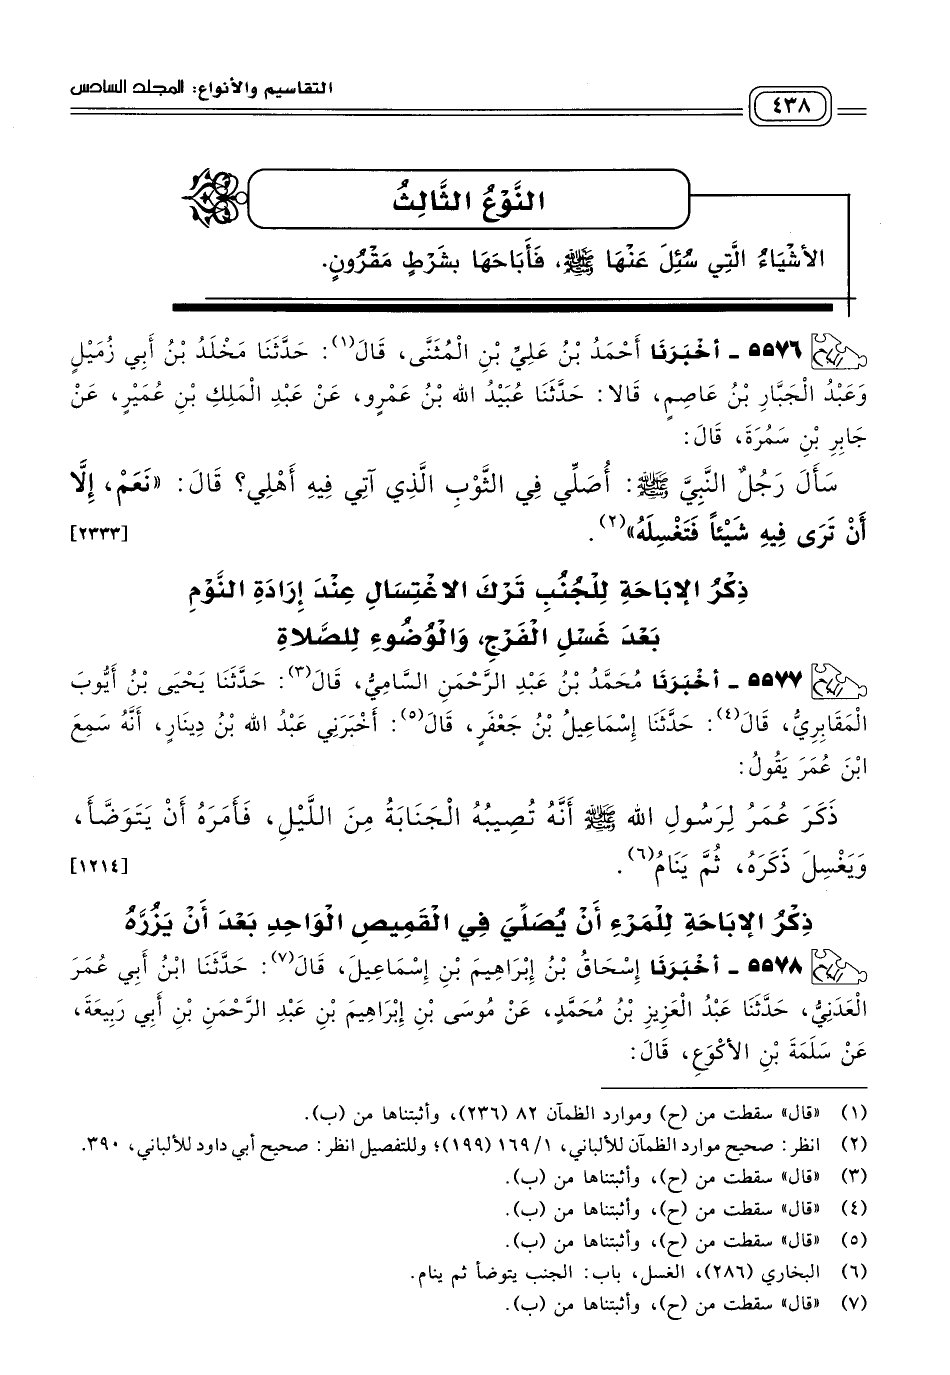 ٤٣٨
التقاسيم والأنواع: المجلد السادس
النَّوْعُ الثَّالِثُ
الأَشْيَاءُ الَّتِي سُئِلَ عَنْهَا ﷺ، فَأَبَاحَهَا بشَرْطٍ مَقْرُونٍ.
٥٥٧٦ ـ أخْبَرَنَا أَحْمَدُ بْنُ عَلِيِّ بْنِ الْمُثَنَّى، قَالَ(١): حَدَّثَنَا مَخْلَدُ بْنُ أَبِي زُمَيْلٍ
وَعَبْدُ الْجَبَّارِ بْنُ عَاصِمٍ، قَالا: حَدَّثَنَا عُبَيْدُ الله بْنُ عَمْرٍو، عَنْ عَبْدِ الْمَلِكِ بْنِ عُمَيْرٍ، عَنْ
جَابِرِ بْنِ سَمُرَةَ، قَالَ:
سَأَلَ رَجُلٌ النَّبِيَّ ﷺ: أُصَلِّي فِي الثَّوْبِ الَّذِي آتِي فِيهِ أَهْلِي؟ قَالَ: «نَعَمْ، إِلَّا
أَنْ تَرَى فِيهِ شَيْئاً فَتَغْسِلَهُ»(٢). [٢٣٣٣]
ذِكْرُ الإبَاحَةِ لِلْجُنُبِ تَرْكَ الاغْتِسَالِ عِنْدَ إرَادَةِ النَّوْمِ
بَعْدَ غَسْلِ الْفَرْجِ، وَالْوُضُوءِ لِلصَّلاةِ
٥٥٧٧ ـ أخْبَرَنَا مُحَمَّدُ بْنُ عَبْدِ الرَّحْمَنِ السَّامِيُّ، قَالَ(٣): حَدَّثَنَا يَحْيَى بْنُ أَيُّوبَ
الْمَقَابِرِيُّ، قَالَ(٤): حَدَّثَنَا إِسْمَاعِيلُ بْنُ جَعْفَرٍ، قَالَ(٥): أَخْبَرَنِي عَبْدُ الله بْنُ دِينَارٍ، أَنَّهُ سَمِعَ
ابْنَ عُمَرَ يَقُولُ:
ذَكَرَ عُمَرُ لِرَسُولِ الله ﷺ أَنَّهُ تُصِيبُهُ الْجَنَابَةُ مِنَ اللَّيْلِ، فَأَمَرَهُ أَنْ يَتَوَضَّأَ،
وَيَغْسِلَ ذَكَرَهُ، ثُمَّ يَنَامُ(٦). [١٢١٤]
ذِكْرُ الإبَاحَةِ لِلْمَرْءِ أَنْ يُصَلِّيَ فِي الْقَمِيصِ الْوَاحِدِ بَعْدَ أَنْ يَزُرَّهُ
٥٥٧٨ ـ أخْبَرَنَا إِسْحَاقُ بْنُ إِبْرَاهِيمَ بْنِ إِسْمَاعِيلَ، قَالَ(٧): حَدَّثَنَا ابْنُ أَبِي عُمَرَ
الْعَدَنِيُّ، حَدَّثَنَا عَبْدُ الْعَزِيزِ بْنُ مُحَمَّدٍ، عَنْ مُوسَى بْنِ إِبْرَاهِيمَ بْنِ عَبْدِ الرَّحْمَنِ بْنِ أَبِي رَبِيعَةَ،
عَنْ سَلَمَةَ بْنِ الأَكْوَعِ، قَالَ:
(١) «قال» سقطت من (ح) وموارد الظمآن ٨٢ (٢٣٦)، وأثبتناها من (ب).
(٢) انظر: صحيح موارد الظمآن للألباني، ١/ ١٦٩ (١٩٩)؛ وللتفصيل انظر: صحيح أبي داود للألباني، ٣٩٠.
(٣) «قال» سقطت من (ح)، وأثبتناها من (ب).
(٤) «قال» سقطت من (ح)، وأثبتناها من (ب).
(٥) «قال» سقطت من (ح)، وأثبتناها من (ب).
(٦) البخاري (٢٨٦)، الغسل، باب: الجنب يتوضأ ثم ينام.
(٧) «قال» سقطت من (ح)، وأثبتناها من (ب).